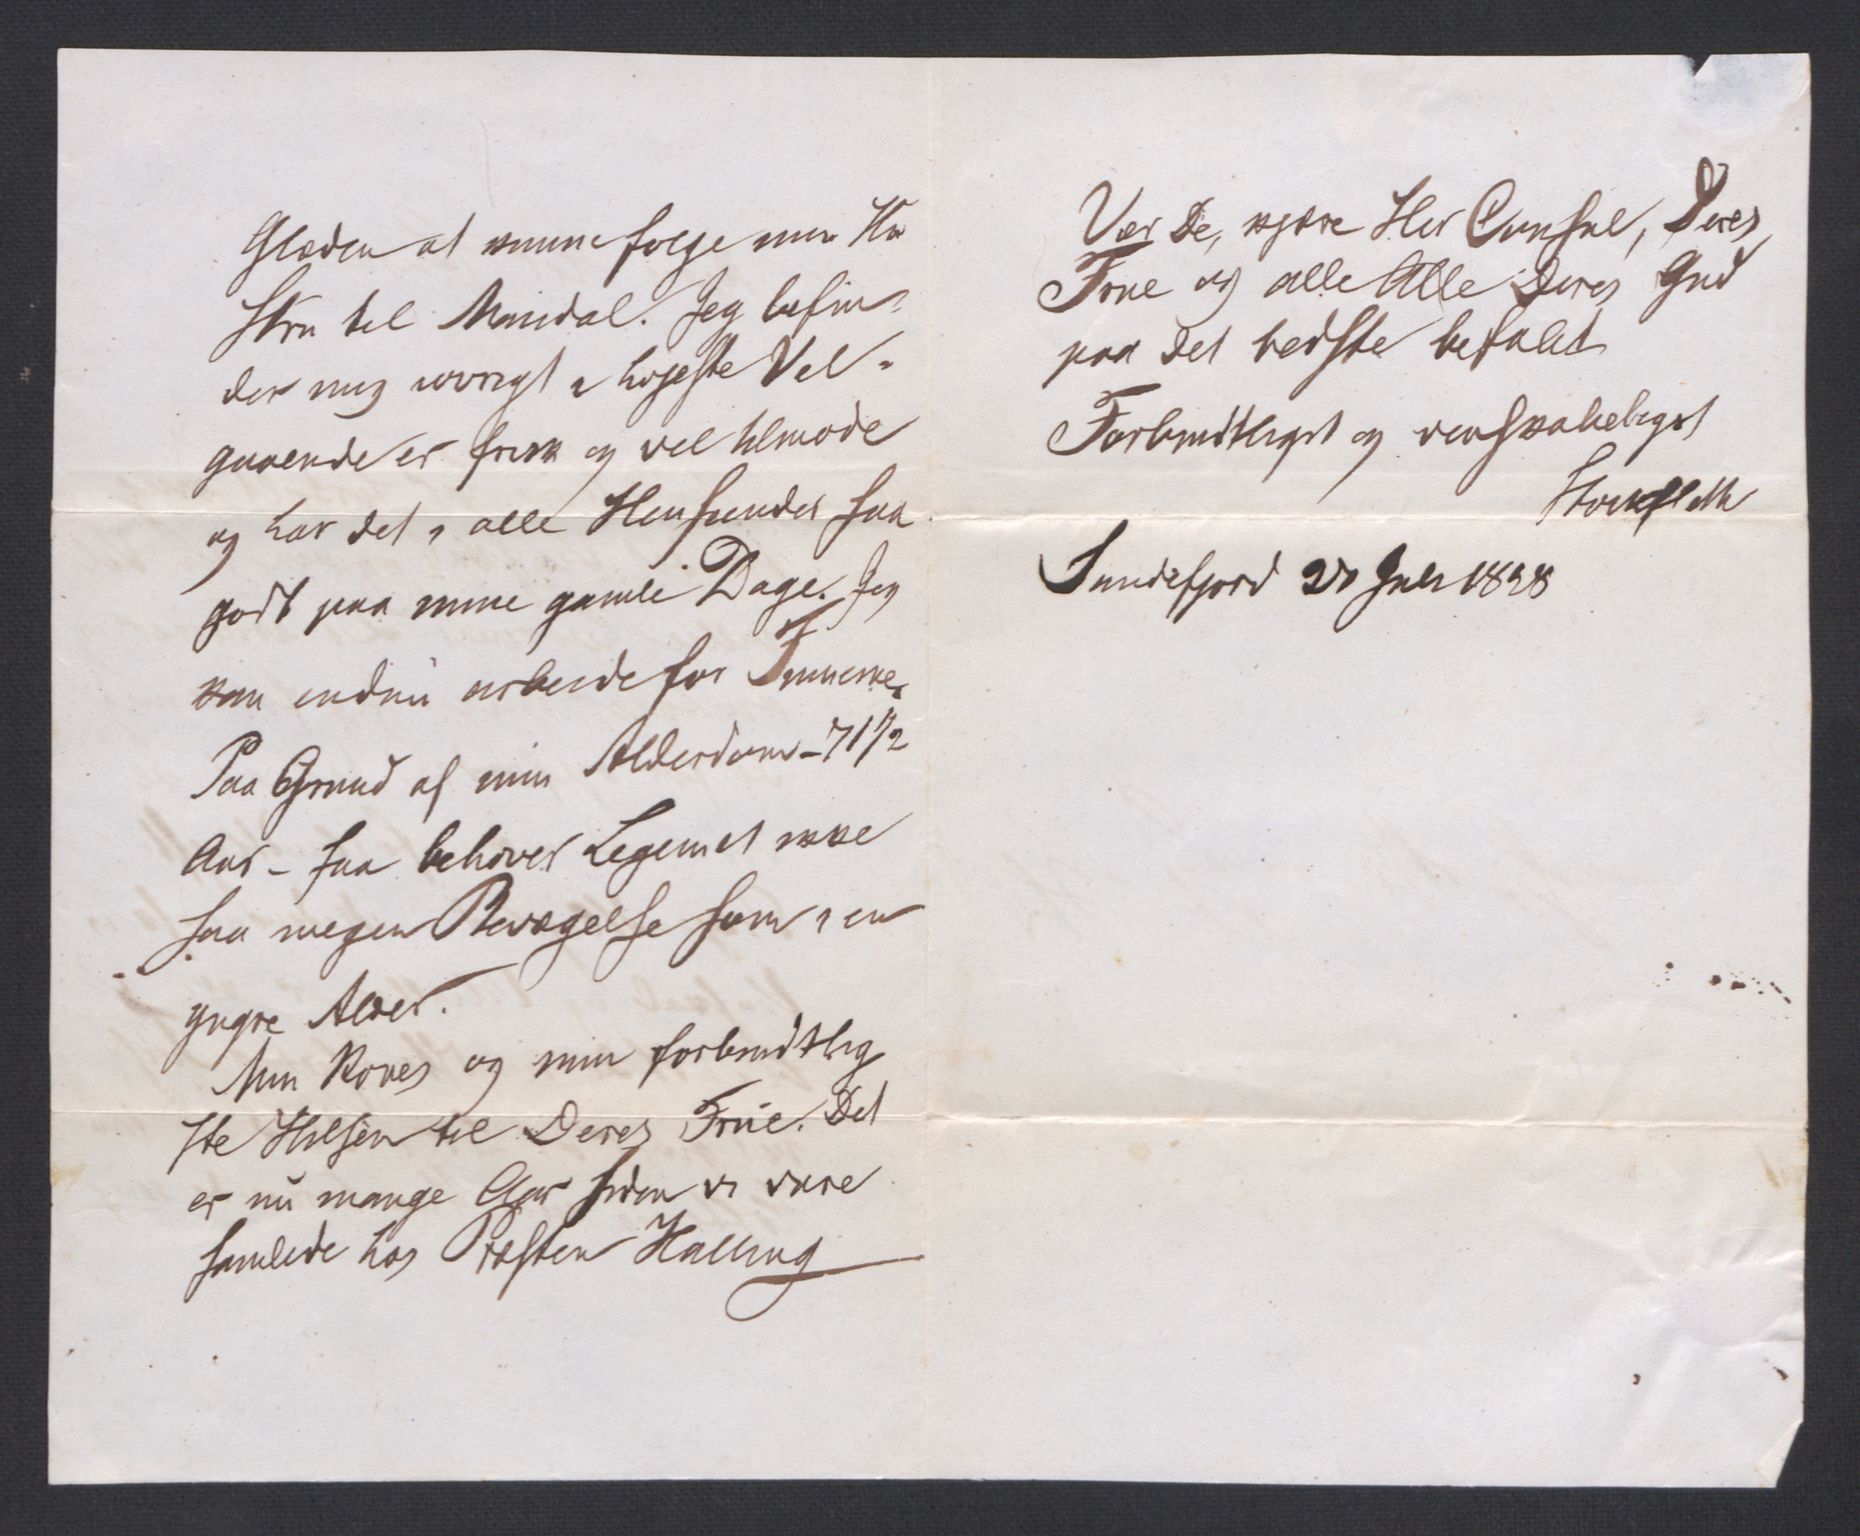 Glæden at kunne følge min Hu
stru til Mandal. Jeg befin-
der mig iøvrigt i høieste Vel-
gaaende er frisk og vel tilmode
og har det i alle Henseender saa
godt paa mine gamle Dage. Jeg
kan endnu arbeide for Finnerne.
Paa Grund af min Alderdom – 71 1/2
Aar – saa behøver Legemet ikke
saa megen Bevægelse som i en
yngre Alder.
Min Kones og min forbindtlig
ste Hilsen til Deres Frue. Det
er nu mange Aar siden vi vare
samlede hos Præsten Halling
Vær De, kjære Her Consul, Deres
Frue og alle Alle Deres Gud
paa det bedste befalet
Forbindtligst og venskabeligst
Stockfleth
Sandefjord 20 Juli 1858